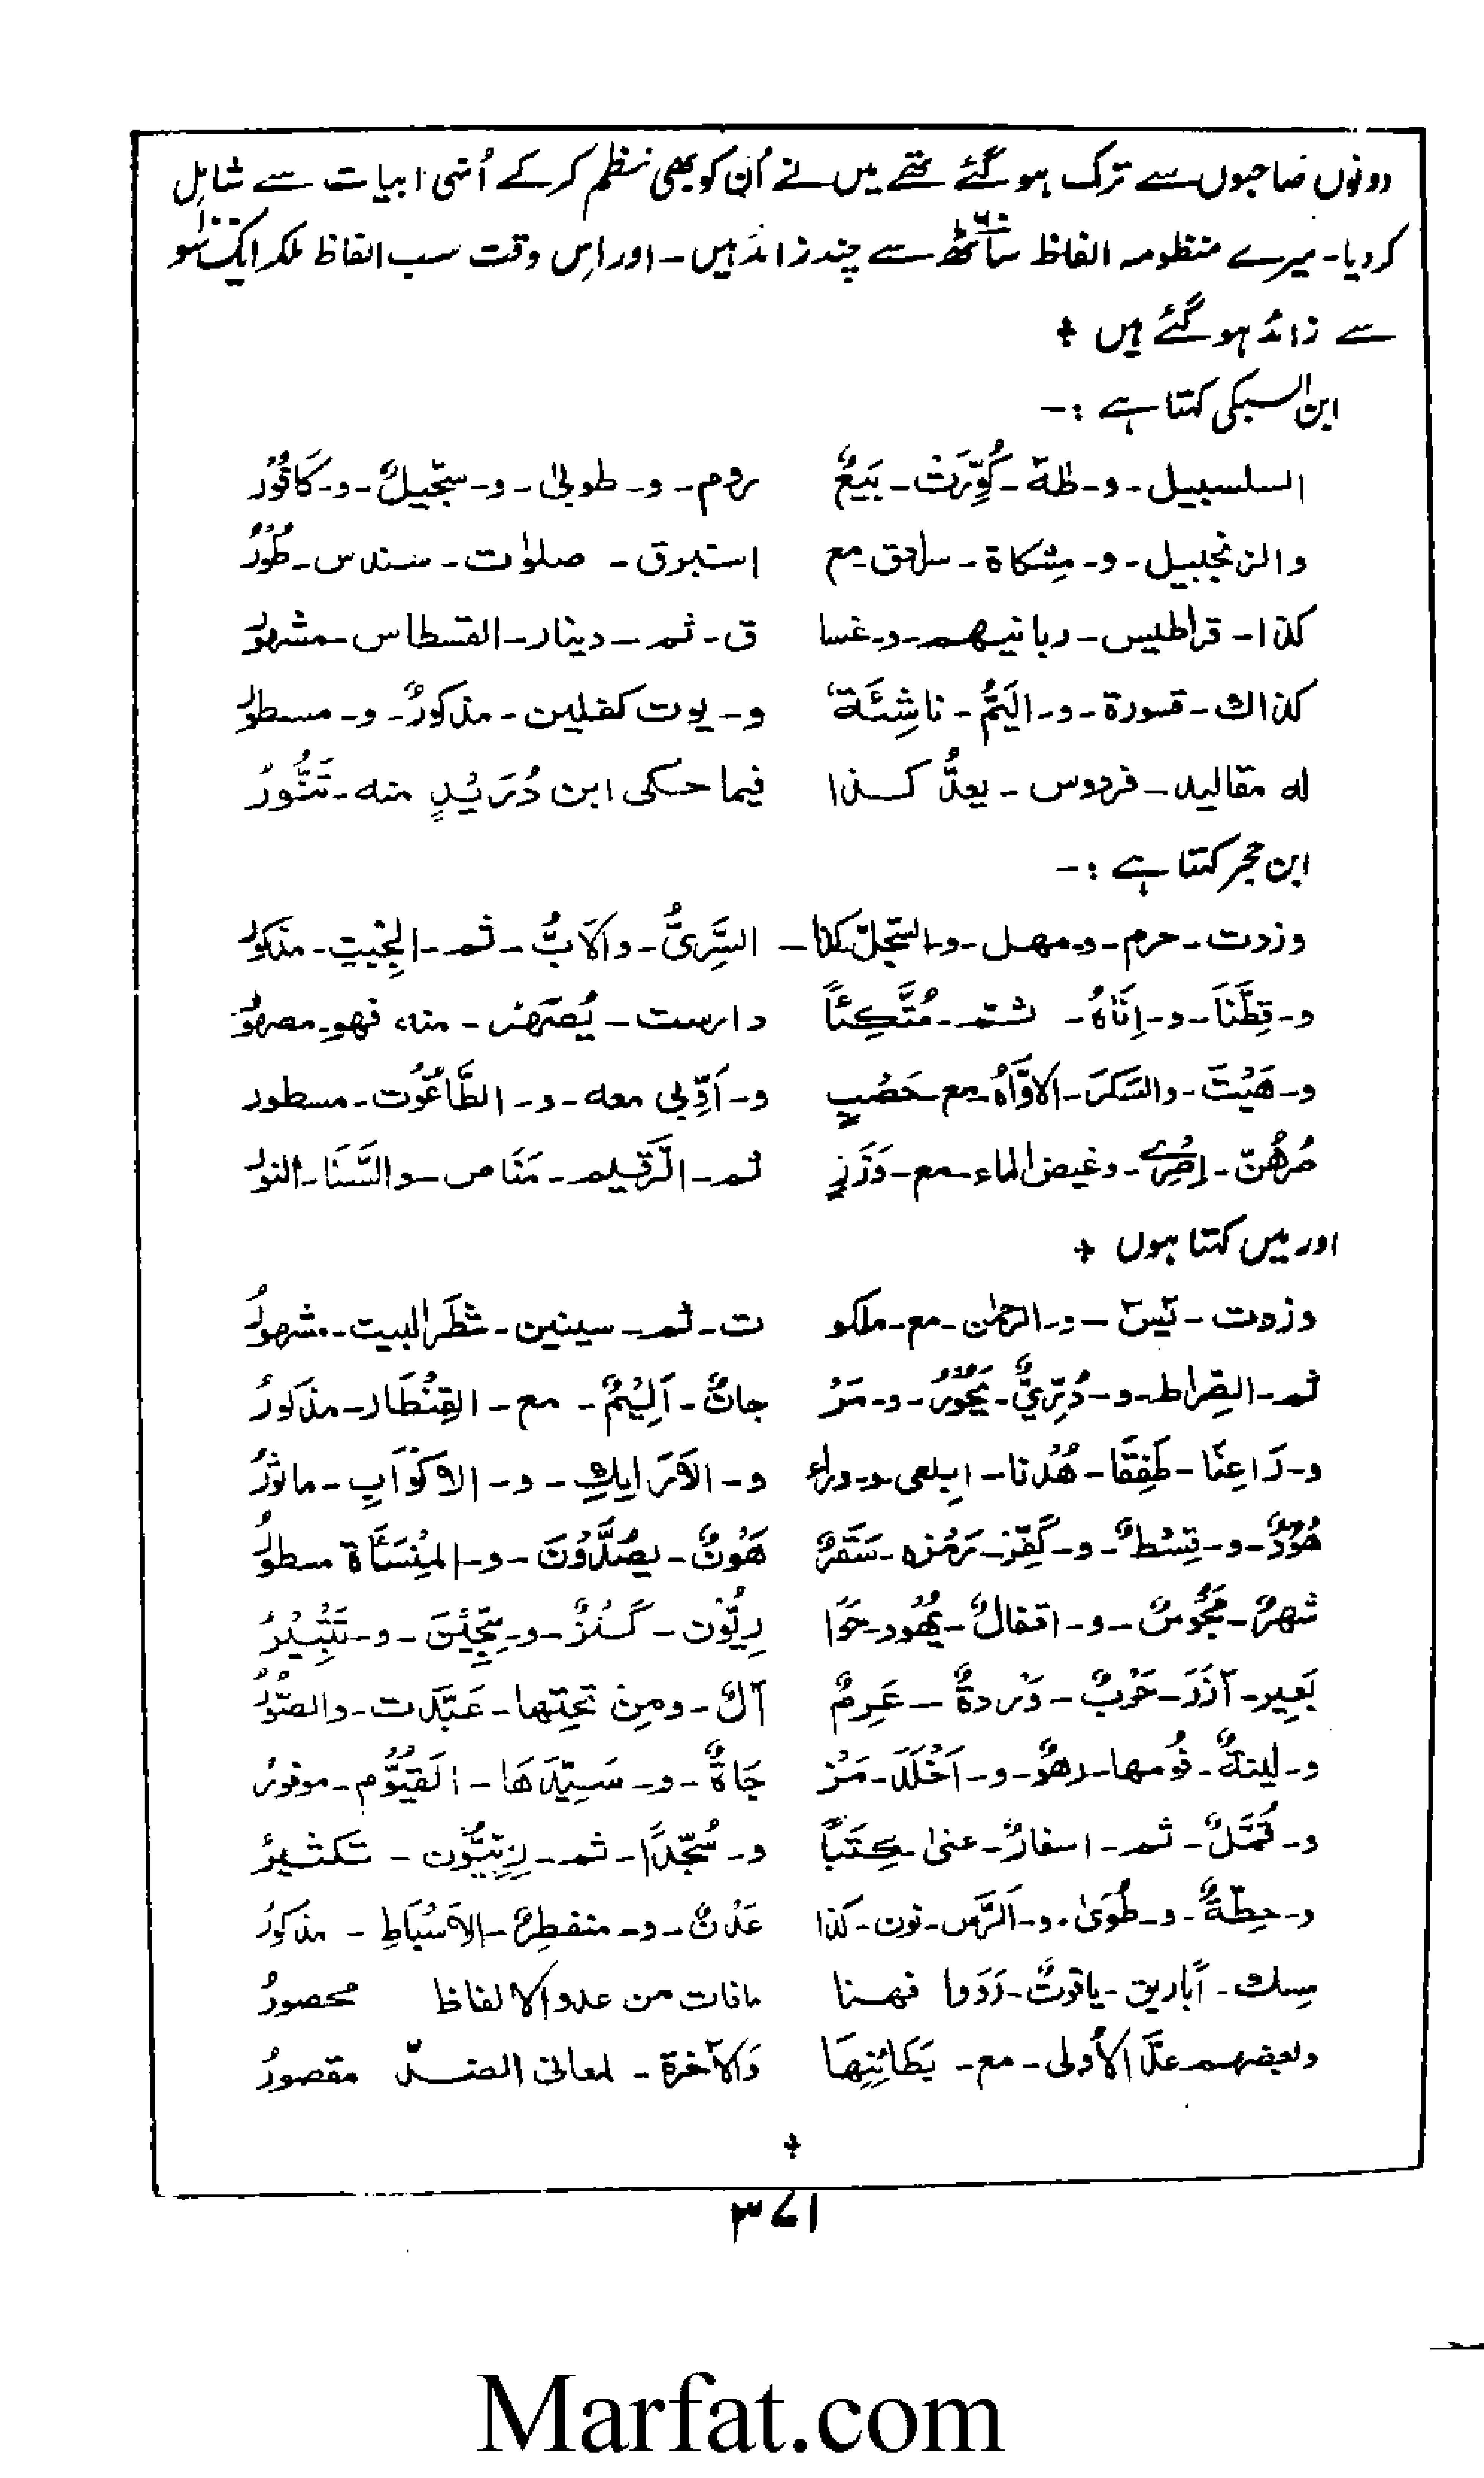 دونوں صاحبوں سے ترک ہو گئے تھے میں نے اُن کو بھی نظم کر کے اُنہی ابیات سے شامل
کر دیا - میرے منظومہ الفاظ ساٹھ سے چند زائد ہیں - اور اس وقت سب الفاظ ملکر ایک سو
سے زائد ہو گئے ہیں +
ابن السبکی کہتا ہے :-
السلسبيل - و - طٰهٰ - كُوِّرَتْ - بِيَعٌ روم - و - طوبىٰ - و - سجّيلٌ - و - كَافُوْرٌ
والزنجبيل - و - مِشكاة - سرادق مع استبرق - صلوٰت - سندس - طُوْرٌ
كذا - قراطيس - ربانيهم - و - غسا ق - ثم - دينار - القسطاس - مشهورٌ
كذاك - قسورة - و - اليَمُّ - ناشِئَةٌ و - يوت كفلين - مذكورٌ - و - مسطورٌ
له مقاليد - فردوس - يعدُّ كذا فيما حكى ابن دُرَيْدٍ منه - تَنُّورٌ
ابن حجر کہتا ہے :-
وزدت - حرم - و - مهل - والسّجلّ كذا - السَّرِىُّ - والاَبُّ - ثم - الجِبْتِ - مذكور
و - قِطَّنَا - و - اِنَاهُ - ثم - مُتَّكِئًا دارست - يُصْهَرُ - منه فهو - مصهورٌ
و - هَيْتَ - والسَّكَرَ - الاوَّاهُ - مع - حَصَبٍ و - اَوِّبِي معه - و - الطَّاغُوْت - مسطور
صُرْهُنّ - اِصْرِيْ - وغيض الماء - مع - وَزَرٍ ثم - الرَّقيم - مَنَاص - والسَّنَا - النور
اور میں کہتا ہوں +
وزدت - يٰسٓ - و - الرحمٰن - مع - ملكو ت - ثم - سينين - شَطْرَ البيت - مشهورٌ
ثم - الصِّراط - و - دُرِّيٌّ - يَحُوْرُ - و - مَرْ جانٌ - اَلِيْمٌ - مع - القِنْطَار - مذكورٌ
و - رَاعِنَا - طَفِقَا - هُدْنا - ابلعى - و - وراء و - الاَرَائِكِ - و - الاَكْوَابِ - ماثورٌ
هُوْدٌ - و - قِسْطٌ - و - كَفِّرْ - رَمْزه - سَقَرٌ هَوْنٌ - يصُدُّوْنَ - و - المِنْسَأَة مسطورٌ
شهرٌ - مَجُوْسٌ - و - اقفالٌ - يَهُود - حَوَا رِيُّوْن - كَنْزٌ - و - سِجِّيْنَ - و - تَتْبِيْرٌ
بَعِير - اٰزَرَ - حُوْبٌ - وَرْدةٌ - عَرِمٌ اٰلٌ - ومِنْ تَحْتِها - عَبَّدت - والصُّوْرُ
و - لينةٌ - فُومها - رهوٌ - و - اَخْلَدَ - مَزْ جَاةٌ - و - سَيِّدَهَا - القَيُّوْم - موفورٌ
و - قُمَّلٌ - ثم - اسفارٌ - عنىٰ - كِتَبًا و - سُجَّدًا - ثم - رِبِّيُّوْن - تكثيرٌ
و - حِطّةٌ - و - طُوًى - و - الرَّس - نون - كذا عَدْنٌ - و - منفطِرٌ - الاَسْبَاطِ - مذكورٌ
مِسك - اَباريق - ياقوتٌ - رَوَوا فهنا مافات من عدد الالفاظ محصورٌ
وبعضهم عدَّ الاُولى - مع - بَطَائِنِهَا وَالآخرة - لمعانى الضدّ مقصورٌ
+
۳۷۱
Marfat.com